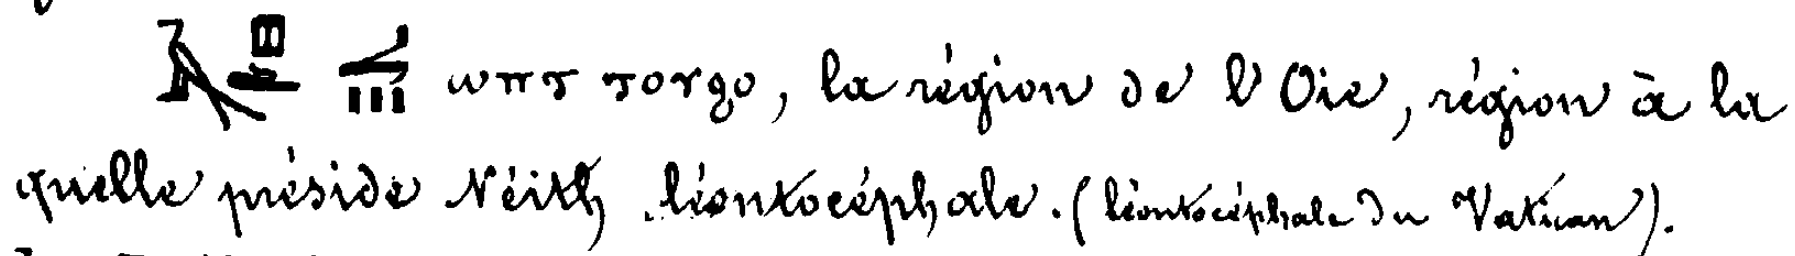 , la région de l'Oie, région à la
quelle préside Néith léontocéphale. (léontocéphale du Vatican).